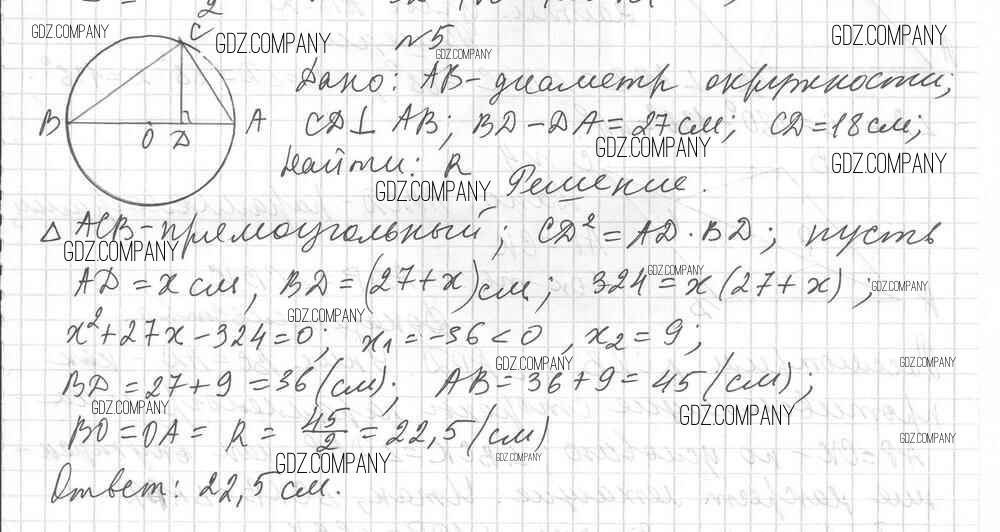 GDZ.COMPANY
C
GDZ.COMPANY
N5
GDZ.COMPANY
GDZ.COMPANY
B
O
D
A
Дано: AB - диаметр окружности;
CD ⊥ AB; BD - DA = 27 см; CD = 18 см;
GDZ.COMPANY
GDZ.COMPANY
Найти: R
GDZ.COMPANY
Решение.
Δ ACB - прямоугольный; CD² = AD · BD; пусть
GDZ.COMPANY
AD = x см, BD = (27 + x) см; 324 = x (27 + x);
GDZ.COMPANY
GDZ.COMPANY
GDZ.COMPANY
x² + 27x - 324 = 0; x₁ = -36 < 0, x₂ = 9;
GDZ.COMPANY
GDZ.COMPANY
BD = 27 + 9 = 36 (см); AB = 36 + 9 = 45 (см);
GDZ.COMPANY
GDZ.COMPANY
BO = OA = R = 45/2 = 22,5 (см)
GDZ.COMPANY
GDZ.COMPANY
GDZ.COMPANY
Ответ: 22,5 см.